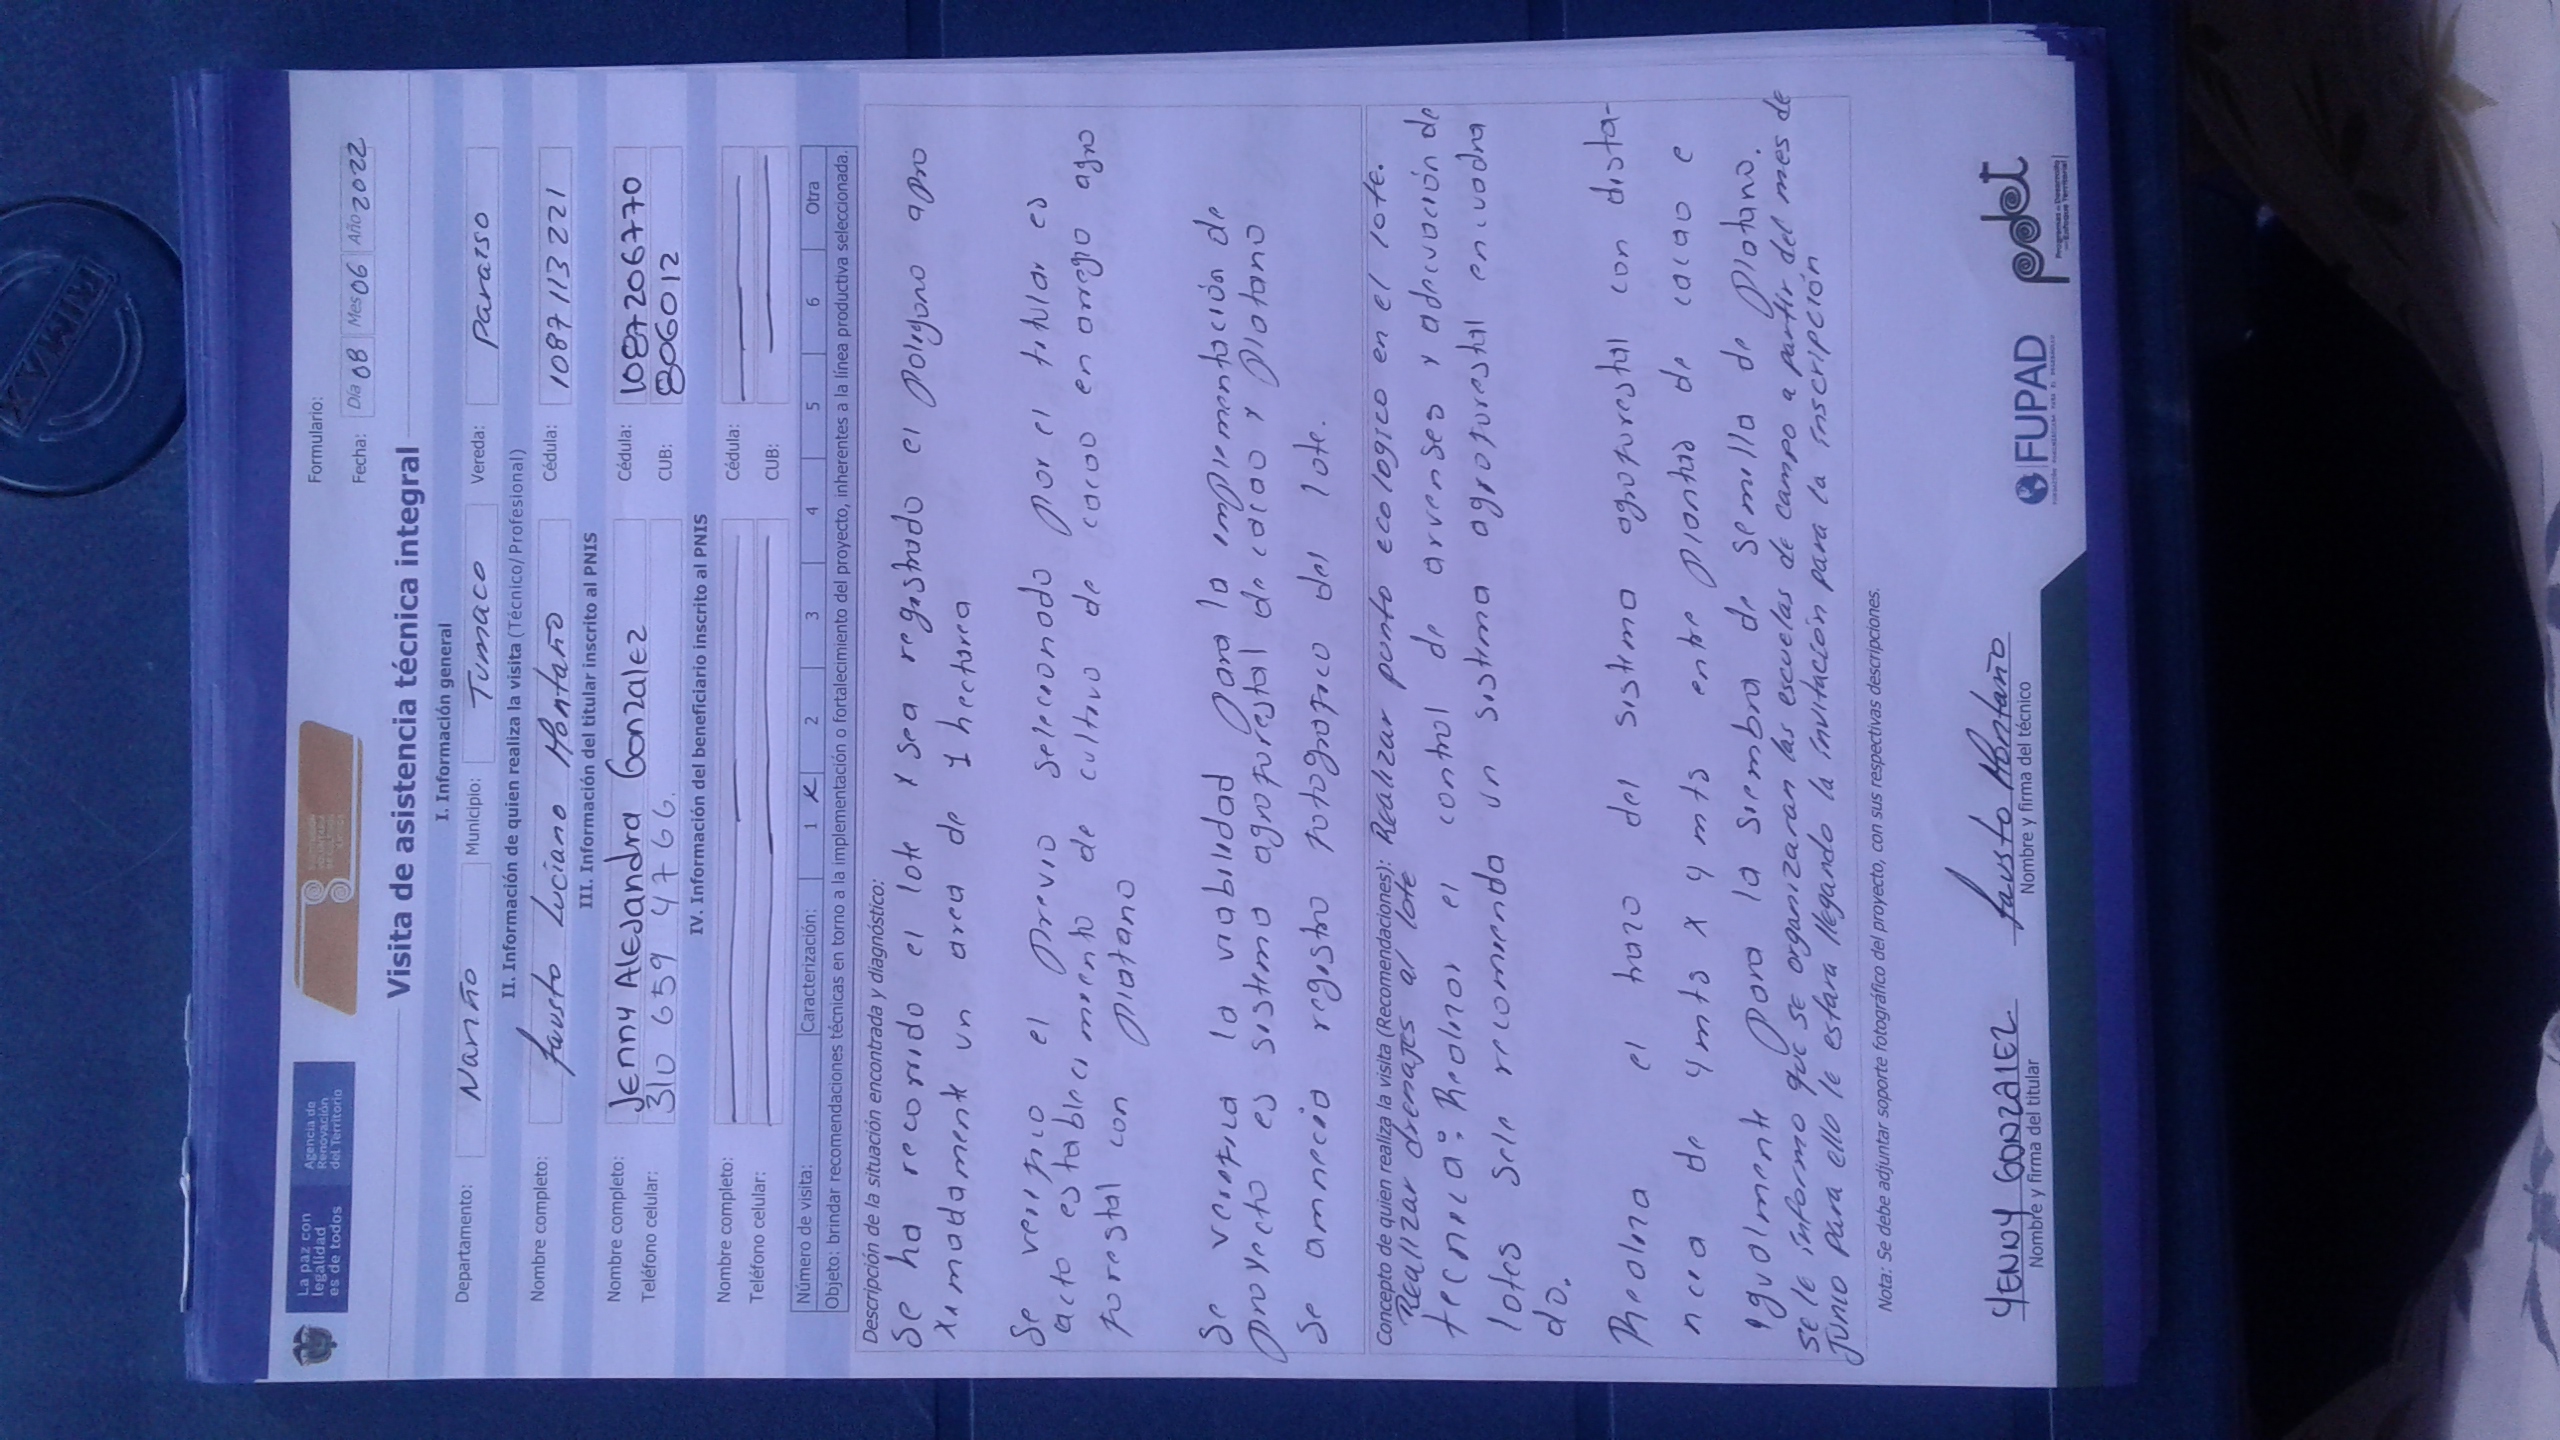 La paz con
legalidad
es de todos
Agencia de
Renovación
del Territorio
Formulario:
Fecha: Día 08 Mes 06 Año 2022
Visita de asistencia técnica integral
I. Información general
Departamento: Nariño Municipio: Tumaco Vereda: Paraiso
II. Información de quien realiza la visita (Técnico/Profesional)
Nombre completo: fausto Luciano Montaño Cédula: 1087113221
III. Información del titular inscrito al PNIS
Nombre completo: JENNY ALEJandra Gonzalez Cédula: 1087206770
Teléfono celular: 310 659 4766. CUB: 806012
IV. Información del beneficiario inscrito al PNIS
Nombre completo: Cédula:
Teléfono celular: CUB:
Número de visita: Caracterización: 1 X 2 3 4 5 6 Otra
Objeto: brindar recomendaciones técnicas en torno a la implementación o fortalecimiento del proyecto, inherentes a la línea productiva seleccionada.
Descripción de la situación encontrada y diagnóstico:
Se ha recorrido el lote y sea registrado el poligono apro
ximadamente un area de 1 hectarea
Se verifico el previo seleccionado por el titular es
acto establecimiento de cultivo de cacao en arreglo agro
forestal con platano
Se verifica la viabilidad para la implementación de
proyecto es sistema agroforestal de cacao y platano
Se amnecia registro fotografico del lote.
Concepto de quien realiza la visita (Recomendaciones): Realizar punto ecologico en el lote.
Realizar drenajes al lote
tecnica: Realizar el control de arvenses y adecuación de
lotes sele recomienda un sistema agroforestal encuadra
do.
Realiza el trazo del sistema agroforestal con dista-
ncia de 4mts x 4 mts entre plantas de cacao e
igualmente para la siembra de semilla de platano.
se le informo que se organizaran las escuelas de campo a partir del mes de
Junio para ello le estara llegando la invitación para la inscripción
Nota: Se debe adjuntar soporte fotográfico del proyecto, con sus respectivas descripciones.
YENNY GONZALEZ
Nombre y firma del titular
fausto Montaño
Nombre y firma del técnico
FUPAD
pdet
Programas de Desarrollo
con Enfoque Territorial